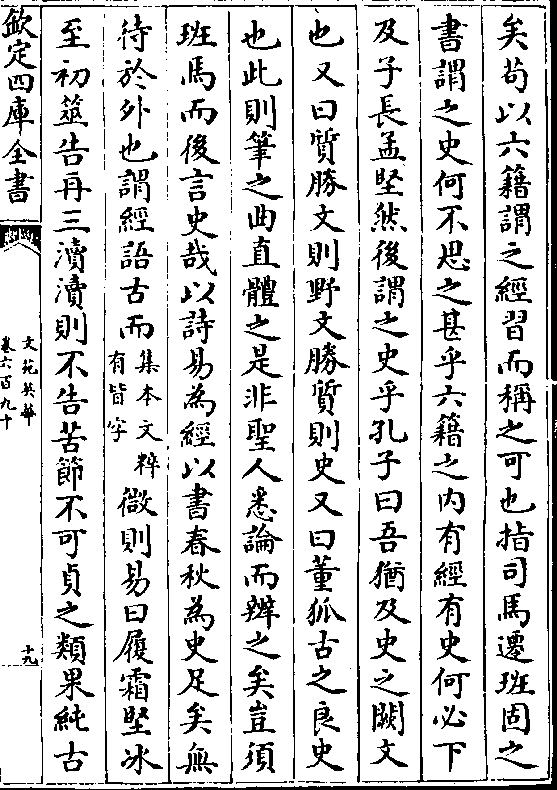 矣苟以六籍謂之經習而稱之可也指司馬遷班固之
書謂之史何不思之甚乎六籍之內有經有史何必下
及子長孟堅然後謂之史乎孔子曰吾猶及史之闕文
也又曰質勝文則野文勝質則史又曰董狐古之良史
也此則筆之曲直體之是非聖人悉論而辨之矣豈須
班馬而後言史哉以詩易為經以書春秋為史足矣無
待於外也謂經語古而集本文粹有皆字微則易曰履霜堅冰
至初筮告再三瀆瀆則不告苦節不可貞之類果純古
欽定四庫全書
文苑英華
卷六百九十
十九